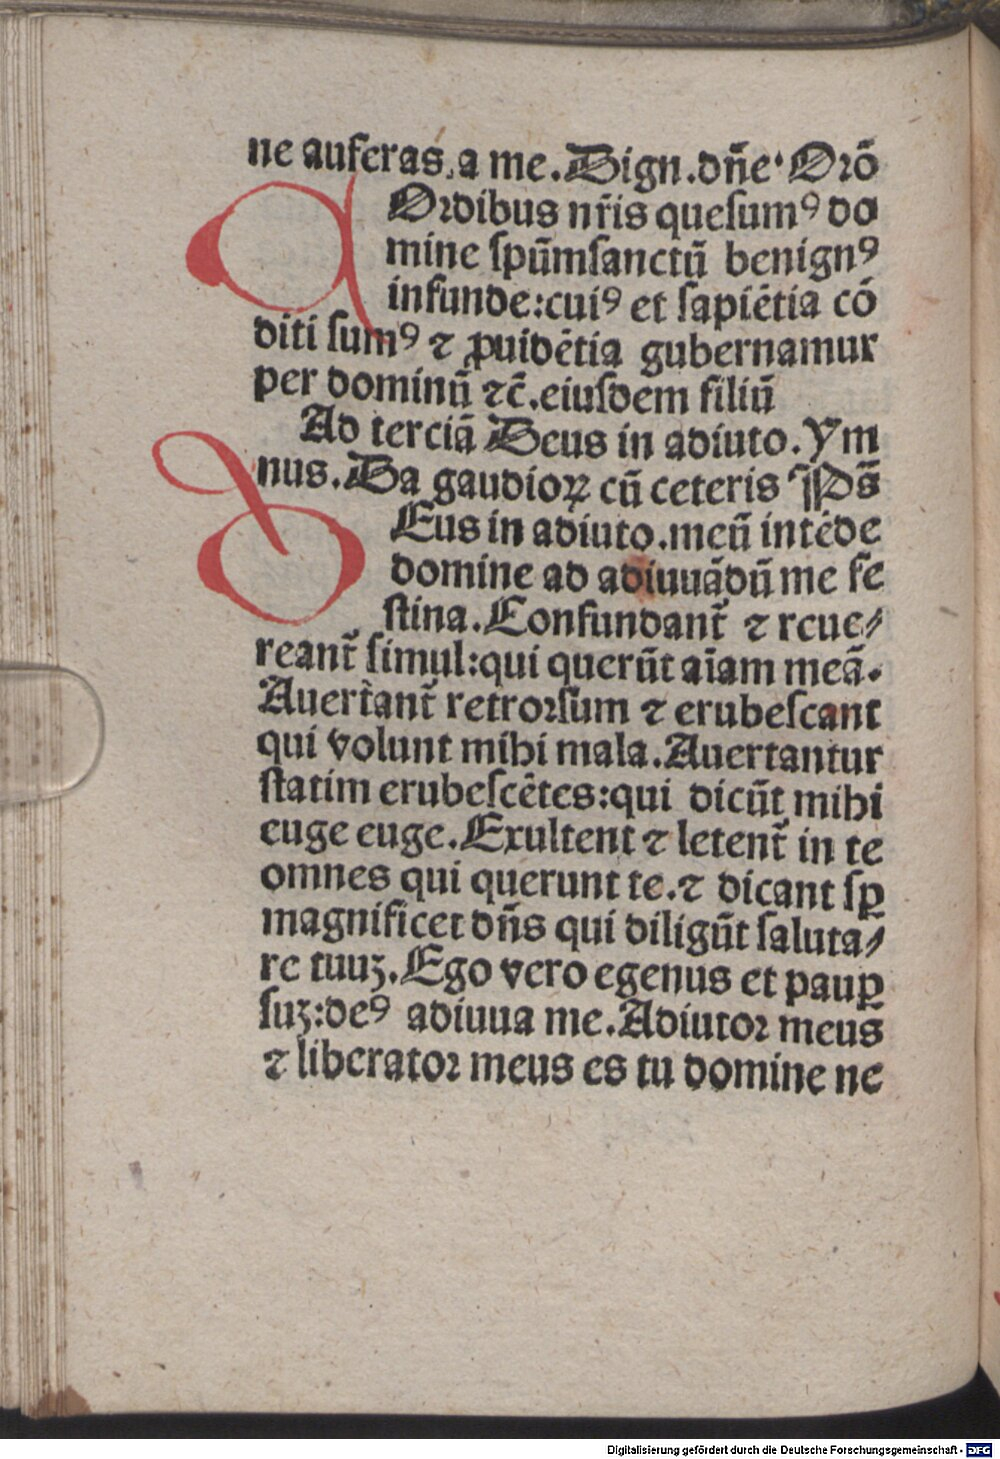 ne auferas a me. Dign. dn̄e· Orō
Ordibus nr̄is quesumꝰ do
mine spūmsanctū benignꝰ
infunde:cuiꝰ et sapiētia cō
diti sumꝰ ⁊ ꝓuidētia gubernamur
per dominū ⁊c̄. eiusdem filiū
Ad terciā Deus in adiuto. Ym
nus. Da gaudioꝝ cū ceteris Ps̄
Eus in adiuto. meū intēde
domine ad adiuuādū me fe
stina. Confundant̄ ⁊ reue⸗
reant̄ simul:qui querūt aīam meā.
Auertant̄ retrorsum ⁊ erubescant
qui volunt mihi mala. Auertantur
statim erubescētes:qui dicūt mihi
euge euge. Exultent ⁊ letent̄ in te
omnes qui querunt te. ⁊ dicant sꝑ
magnificet dn̄s qui diligūt saluta⸗
re tuuꝫ. Ego vero egenus et pauꝑ
suꝫ:deꝰ adiuua me. Adiutor meus
⁊ liberator meus es tu domine ne
Digitalisierung gefördert durch die Deutsche Forschungsgemeinschaft - DFG